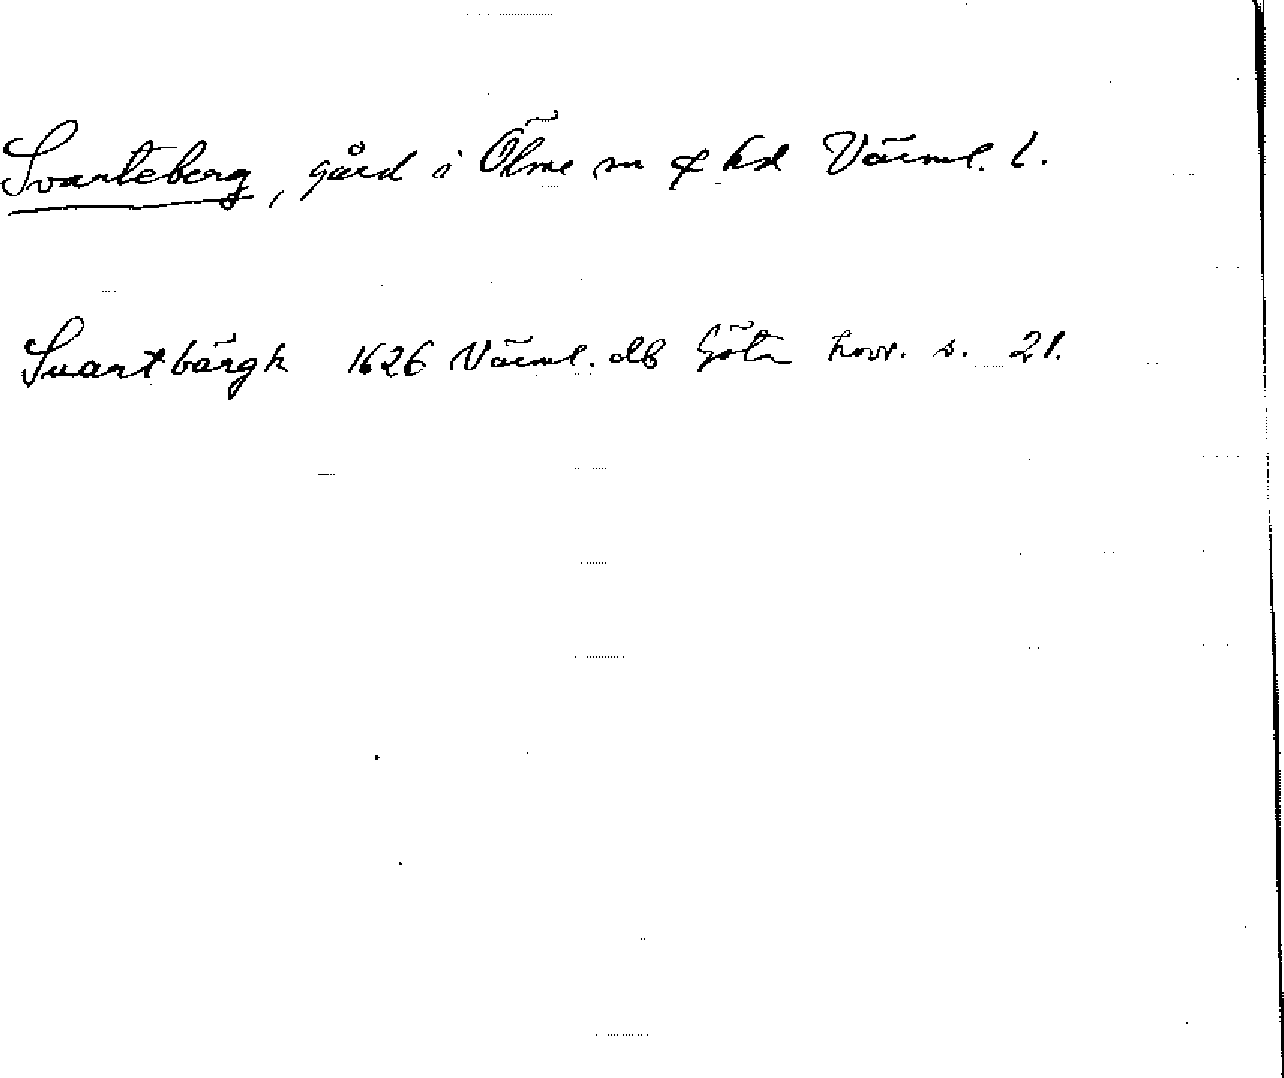 Svarteberg, gård i Ölme sn & hd Värml. l.
Suartbärgh 1626 Värml. db Göta hovr. s. 21.